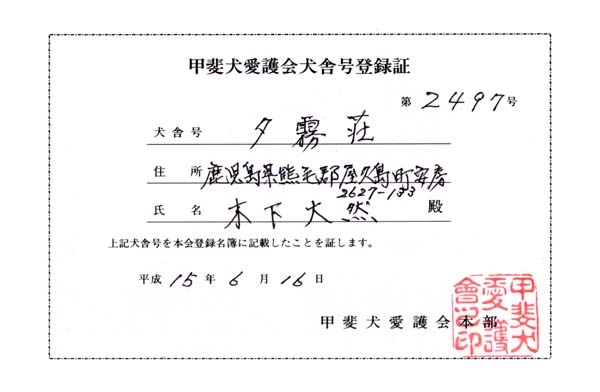 甲斐犬愛護会犬舎号登録証
第2497号
犬舎号 夕霧荘
住所 鹿児島県熊毛郡屋久島町安房
2627-133
氏名 木下大然 殿
上記犬舎号を本会登録名簿に記載したことを証します。
平成15年6月16日
甲斐犬愛護会本部
甲斐犬愛護會之印